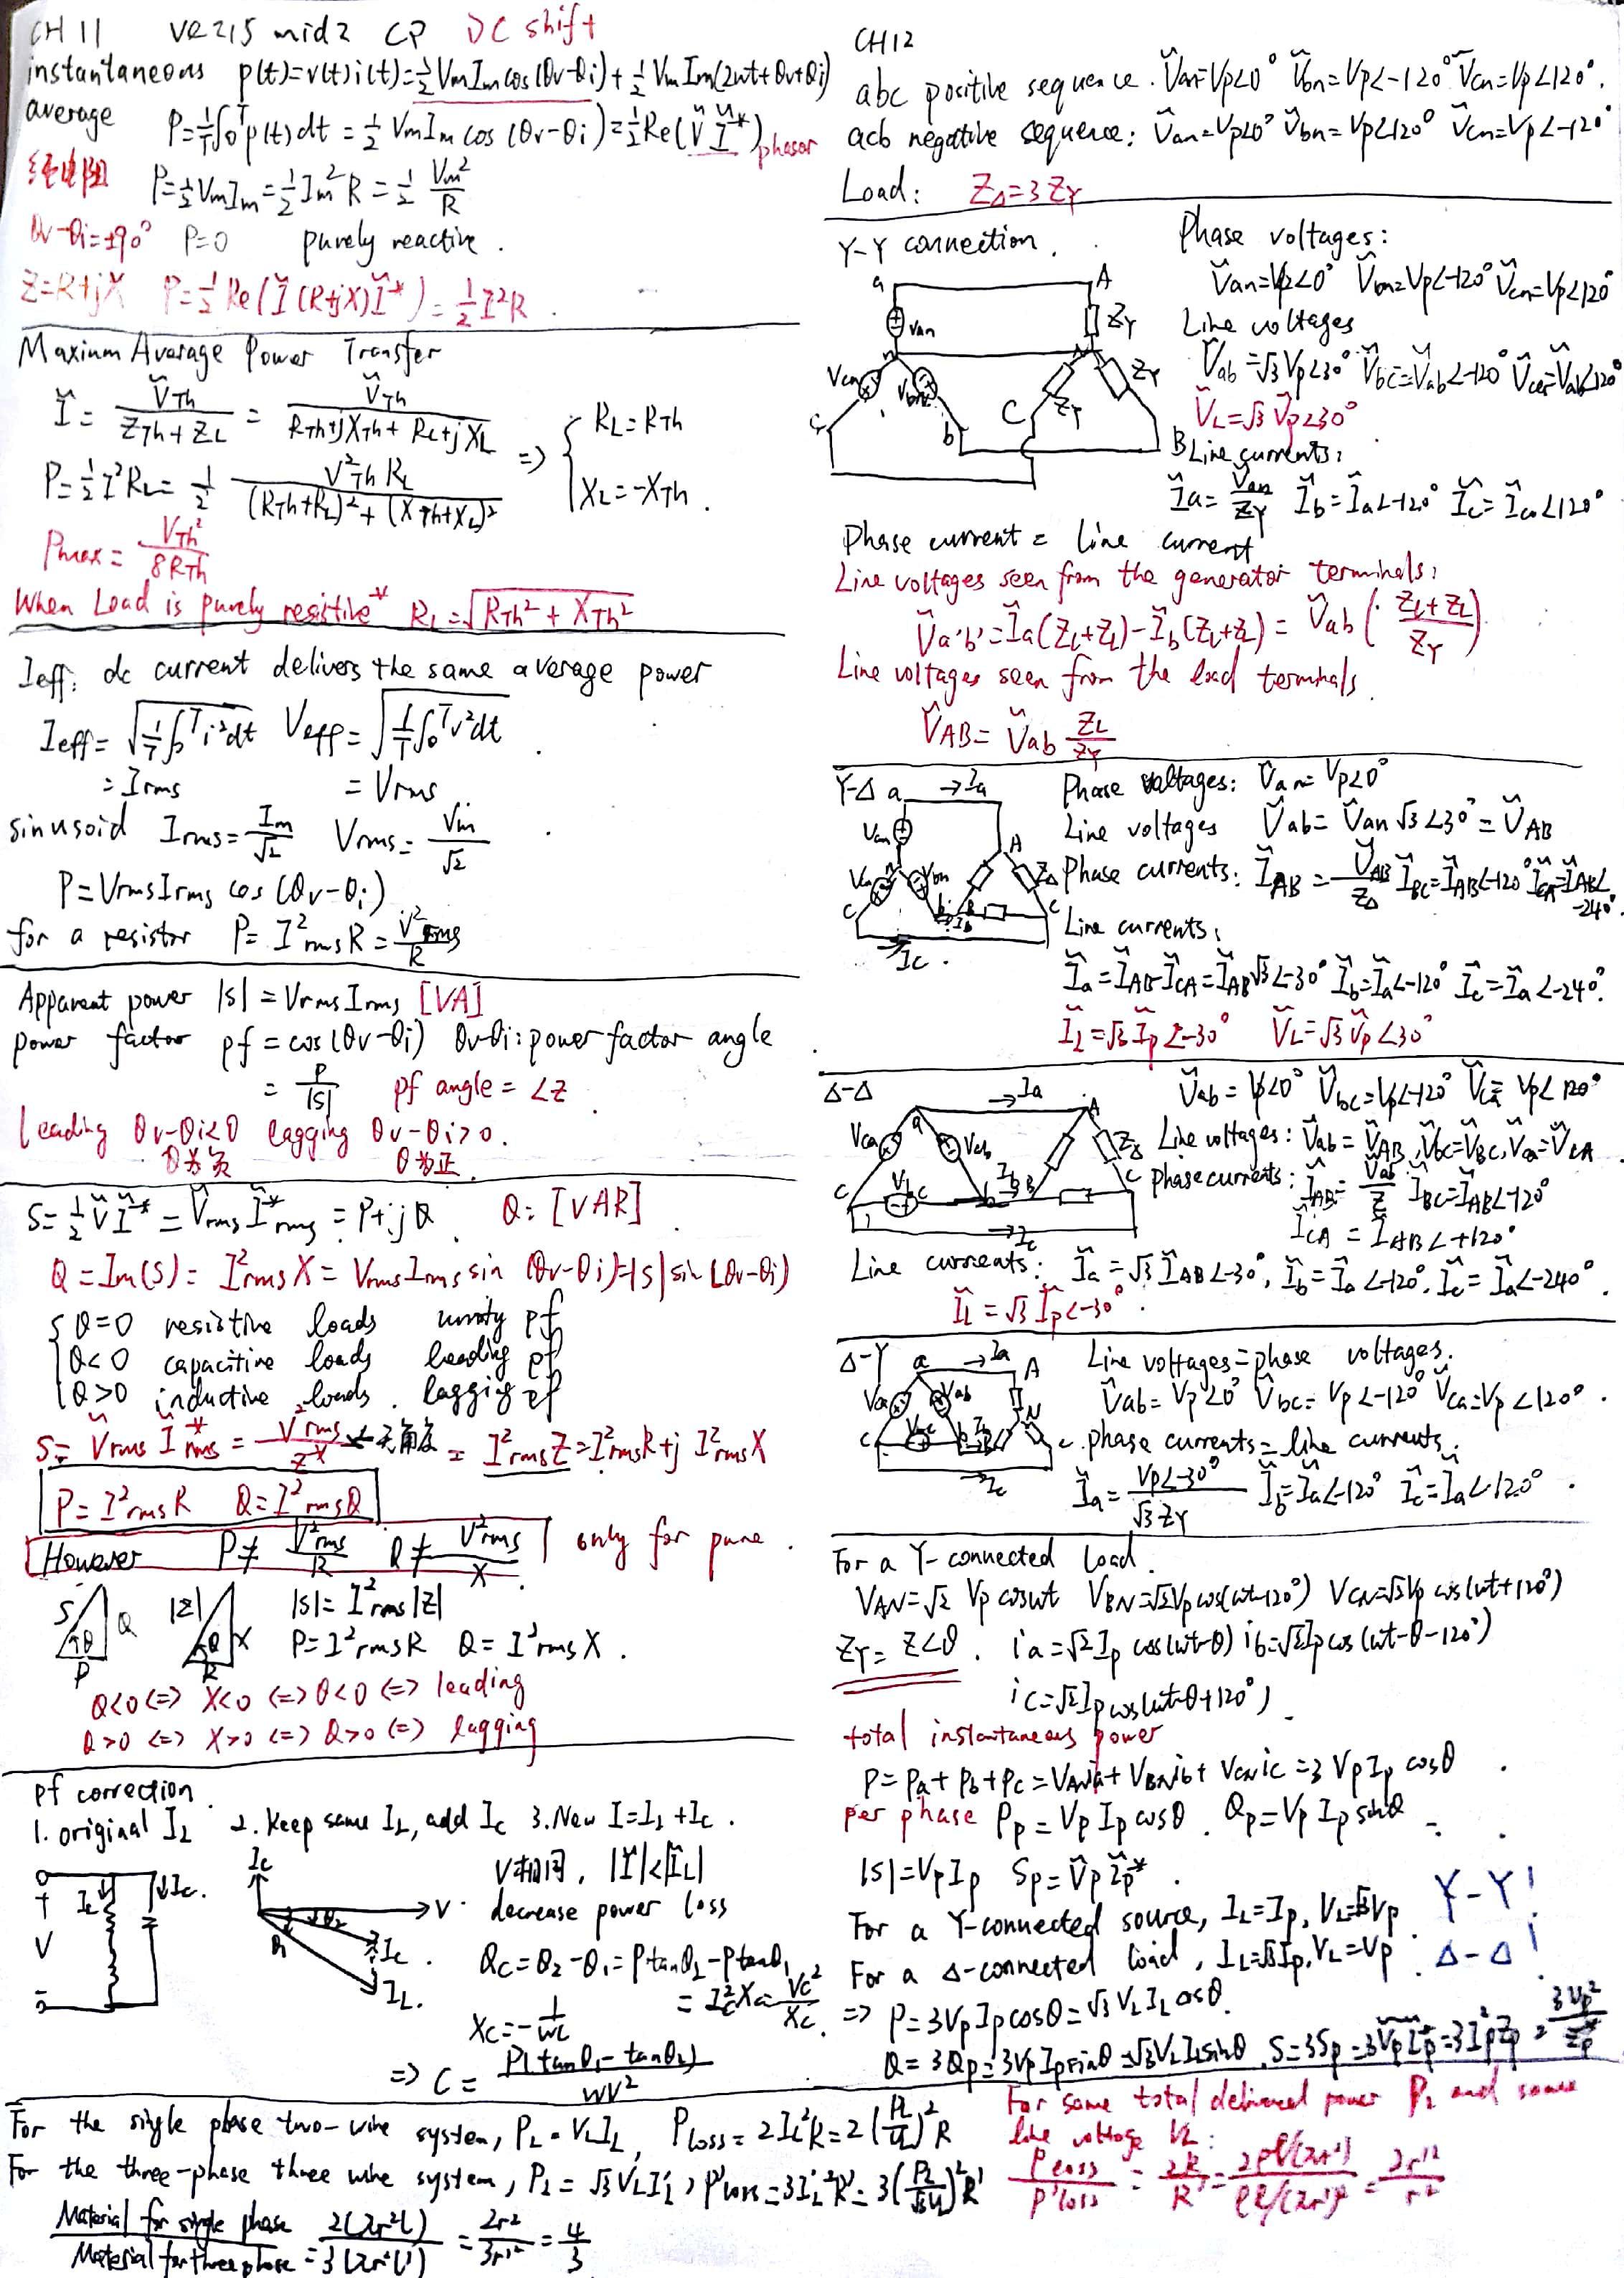 CH 11 VE215 mid2 CP DC shift
instantaneous p(t)=v(t)i(t)=½VmIm cos(θv-θi)+½VmIm(2wt+θv+θi)
average P=1/T∫₀ᵀp(t)dt = ½VmIm cos(θv-θi)=½Re(ṼĨ*) phasor
纯电阻 P=½VmIm=½Im²R=½ Vm²/R
θv-θi=±90° P=0 purely reactive.
Z=R+jX P=½Re(Ĩ(R+jX)Ĩ*)=½I²R.
Maximum Average Power Transfer
Ĩ = ṼTh/(ZTh+ZL) = ṼTh/(RTh+jXTh+RL+jXL) => { RL=RTh
P=½I²RL=½ V²Th RL/((RTh+RL)²+(XTh+XL)²) XL=-XTh.
Pmax = VTh²/8RTh
When Load is purely resistive* RL=√(RTh²+XTh²)
Ieff: dc current delivers the same average power
Ieff=√(1/T∫₀ᵀi²dt) Veff=√(1/T∫₀ᵀv²dt).
= Irms = Vrms
sinusoid Irms=Im/√2 Vrms=Vm/√2
P=Vrms Irms cos(θv-θi)
for a resistor P=I²rms R=V²rms/R
Apparent power |S|=Vrms Irms [VA]
power factor pf=cos(θv-θi) θv-θi: power factor angle
= P/|S| pf angle = ∠Z
leading θv-θi<0 lagging θv-θi>0.
θ为负 θ为正
S=½ṼĨ*=Ṽrms Ĩ*rms=P+jQ Q: [VAR]
Q=Im(S)=I²rms X=Vrms Irms sin(θv-θi)=|S|sin(θv-θi)
{ Q=0 resistive loads unity pf
Q<0 capacitive loads leading pf
Q>0 inductive loads. lagging pf
S=Ṽrms Ĩ*rms=V²rms/Z* ←无角度 =I²rms Z=I²rms R+j I²rms X
P=I²rms R Q=I²rms Q
However P≠V²rms/R Q≠V²rms/X only for pure.
S Q θ P |Z| X θ R |S|=I²rms|Z|
P=I²rms R Q=I²rms X.
Q<0 <=> X<0 <=> θ<0 <=> leading
Q>0 <=> X>0 <=> Q>0 <=> lagging
pf correction
1. original IL 2. Keep same IL, add Ic 3. New I=IL+Ic.
V相同, |Ĩ|<|ĨL|
decrease power loss
+ V - IL ↓Ic. Ic V θ1 θ2 Ic IL.
Qc=Q2-Q1=Ptanθ2-Ptanθ1
= Ic²Xc=Vc²/Xc.
Xc=-1/wC
=> C = P(tanθ1-tanθ2)/wV²
For the single phase two-wire system, PL=VLIL, Ploss=2IL²R=2(PL/VL)²R
For the three-phase three wire system, PL=√3VLI'L, P'loss=3I'L²R'=3(PL/√3VL)²R'
Material for single phase/Material for three phase = 2(πr²l)/3(πr'²l) = 2r²/3r'² = 4/3
CH12
abc positive sequence. Ṽan=Vp∠0° Ṽbn=Vp∠-120° Ṽcn=Vp∠120°.
acb negative sequence: Ṽan=Vp∠0° Ṽbn=Vp∠120° Ṽcn=Vp∠-120°
Load: ZΔ=3ZY
Y-Y connection. Phase voltages:
Ṽan=Vp∠0° Ṽbn=Vp∠-120° Ṽcn=Vp∠120°
Line voltages
Ṽab=√3Vp∠30° Ṽbc=Ṽab∠-120° Ṽca=Ṽab∠120°
ṼL=√3Ṽp∠30°
a A Van ZY n N Vcn Vbn ZY ZY c b C B
Line currents:
Ĩa=Ṽan/ZY Ĩb=Ĩa∠-120° Ĩc=Ĩa∠120°
Phase current = line current
Line voltages seen from the generator terminals:
Ṽa'b'=Ĩa(Zl+ZL)-Ĩb(Zl+ZL)=Ṽab(Zl+ZL/ZY)
Line voltages seen from the load terminals.
ṼAB=Ṽab ZL/ZY
Y-Δ a →Ia Phase voltages: Ṽan=Vp∠0°
Line voltages Ṽab=Ṽan√3∠30°=ṼAB
Phase currents: ĨAB=ṼAB/ZΔ ĨBC=ĨAB∠-120° ĨCA=ĨAB∠-240°
Line currents:
Ĩa=ĨAB-ĨCA=ĨAB√3∠-30° Ĩb=Ĩa∠-120° Ĩc=Ĩa∠-240°
ĨL=√3Ĩp∠-30° ṼL=√3Ṽp∠30°
Δ-Δ →Ia Ṽab=Vp∠0° Ṽbc=Vp∠-120° Ṽca=Vp∠120°
Line voltages: Ṽab=ṼAB, Ṽbc=ṼBC, Ṽca=ṼCA
phase currents: ĨAB=Ṽab/Z ĨBC=ĨAB∠-120°
ĨCA=ĨAB∠+120°
Line currents: Ĩa=√3ĨAB∠-30°, Ĩb=Ĩa∠-120°, Ĩc=Ĩa∠-240°.
ĨL=√3Ĩp∠-30°.
Δ-Y a →Ia A Line voltages=phase voltages.
Ṽab=Vp∠0° Ṽbc=Vp∠-120° Ṽca=Vp∠120°.
phase currents=line currents.
Ĩa=Vp∠-30°/√3ZY Ĩb=Ĩa∠-120° Ĩc=Ĩa∠120°.
For a Y-connected load.
VAN=√2Vp coswt VBN=√2Vp cos(wt-120°) VCN=√2Vp cos(wt+120°)
ZY=Z∠θ. ia=√2Ip cos(wt-θ) ib=√2Ip cos(wt-θ-120°)
ic=√2Ip cos(wt-θ+120°)
total instantaneous power
P=pa+pb+pc=VANia+VBNib+VCNic=3VpIp cosθ
per phase Pp=VpIp cosθ. Qp=VpIp sinθ
|S|=VpIp Sp=ṼpĨp*.
For a Y-connected source, IL=Ip, VL=√3Vp Y-Y!
For a Δ-connected load, IL=√3Ip, VL=Vp. Δ-Δ!
=> P=3VpIp cosθ=√3VLIL cosθ.
Q=3Qp=3VpIp sinθ=√3VLIL sinθ. S=3Sp=3ṼpĨp*=3Ip²Zp=3Vp²/Zp*
For same total delivered power PL and same
line voltage VL:
Ploss/P'loss=2R/R'=2ρl/(πr²)/ρl/(πr'²)=2r'²/r²